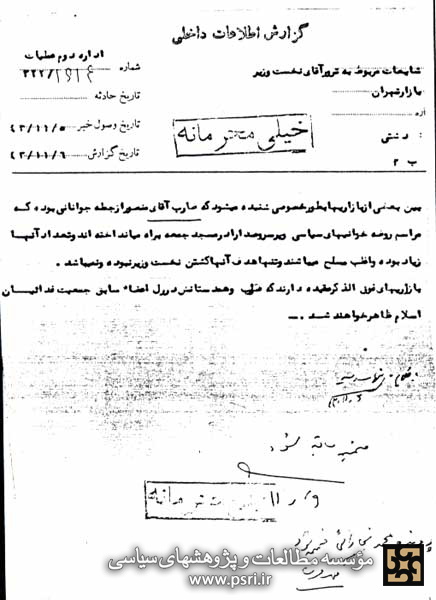 گزارش اطلاعات داخلی
اداره دوم عملیات
شماره ۳۲۲/
شایعات مربوط به ترور آقای نخست وزیر
بازار تهران
تاریخ حادثه
تاریخ وصول خبر ۴۳/۱۱/۵
تاریخ گزارش ۴۳/۱۱/۶
خیلی محرمانه
ب ۲
بین بعضی از بازاریها بطور خصوصی شنیده میشود که ضارب آقای منصور از جمله جوانانی بوده که
مراسم روضه خوانیهای سیاسی و پر سر و صدا را در مسجد جمعه براه میانداخته اند و تعداد آنها
زیاد بوده و اغلب مسلح میباشند و تنها هدف آنها کشتن نخست وزیر نبوده و نمیباشد .
بازاریهای فوق الذکر عقیده دارند که و همدستانش در رل اعضاء سابق جمعیت فدائیان
اسلام ظاهر خواهند شد . ــ
ضمیمه سابقه شود
مؤسسه مطالعات و پژوهشهای سیاسی
www.psri.ir